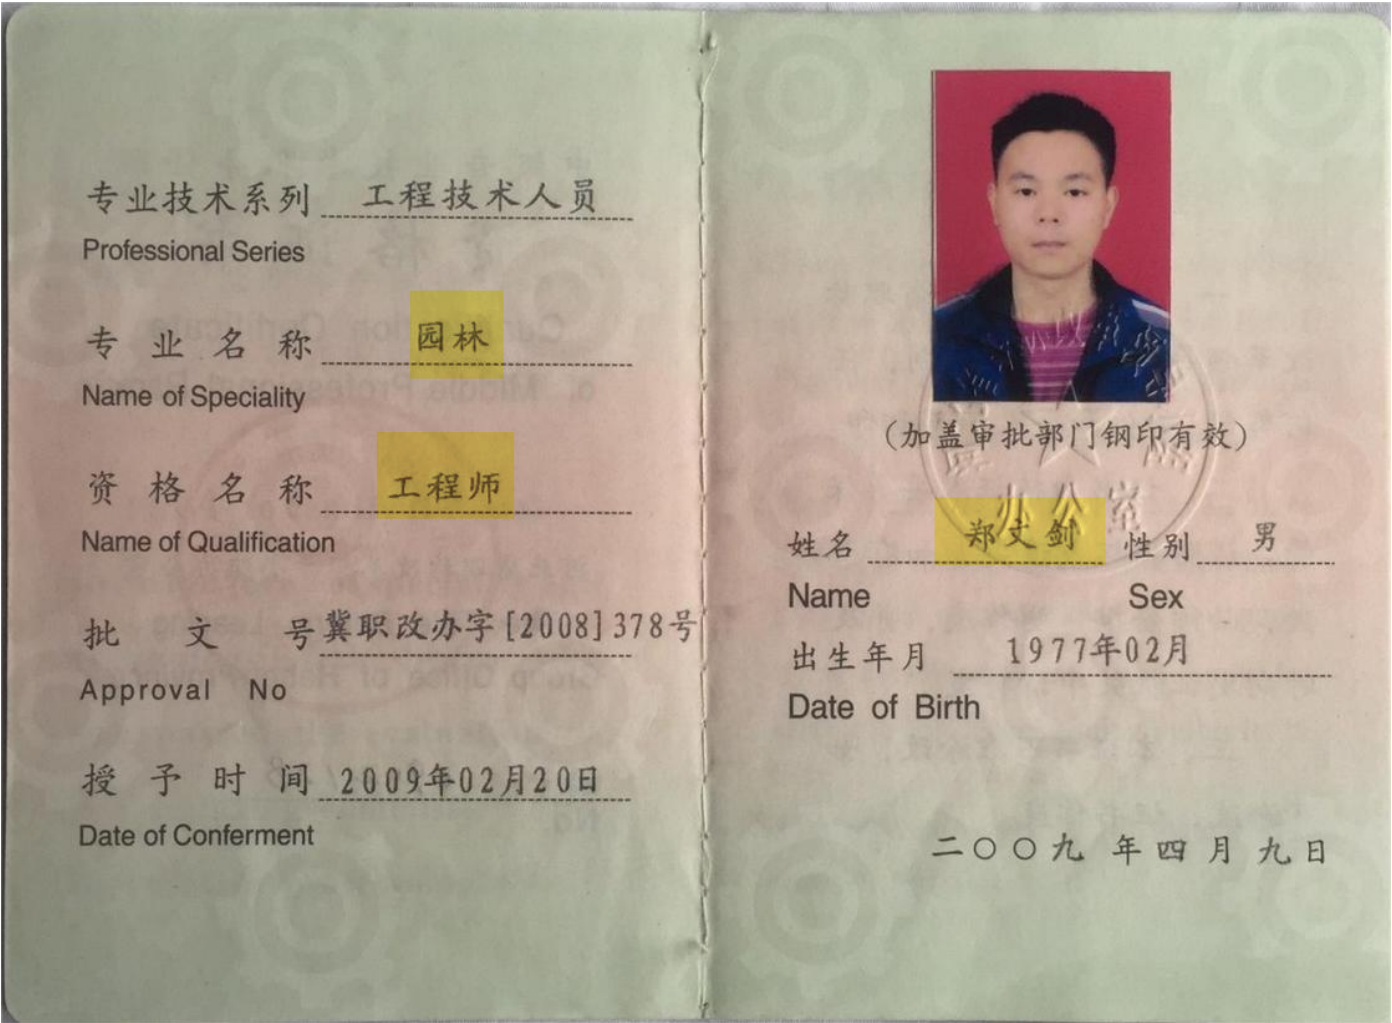 专业技术系列 工程技术人员
Professional Series
专业名称 园林
Name of Speciality
资格名称 工程师
Name of Qualification
批文号 冀职改办字[2008]378号
Approval No
授予时间 2009年02月20日
Date of Conferment
(加盖审批部门钢印有效)
办公室
姓名 郑文剑 性别 男
Name Sex
出生年月 1977年02月
Date of Birth
二〇〇九年四月九日